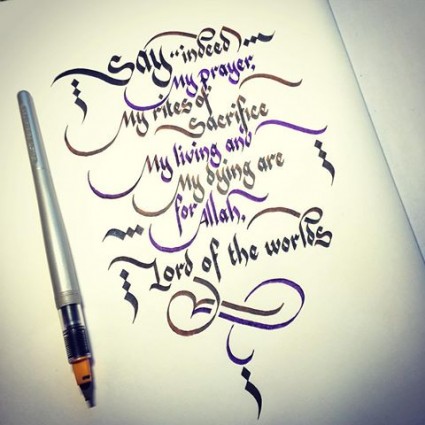 Say "indeed...
My prayer,
My rites of
Sacrifice
My living and
My dying are
for Allah,
Lord of the worlds